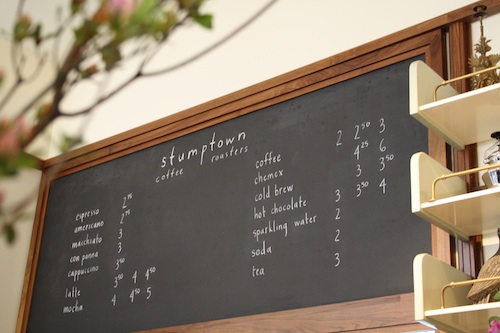 stumptown
coffee roasters
espresso 2 75
americano 2 75
macchiato 3
con panna 3
cappuccino 3 50
latte 3 50 4 4 50
mocha 4 4 50 5
coffee 2 2 50 3
chemex 4 25 6
cold brew 3 3 50
hot chocolate 3 3 50 4
sparkling water 2
soda 2
tea 3